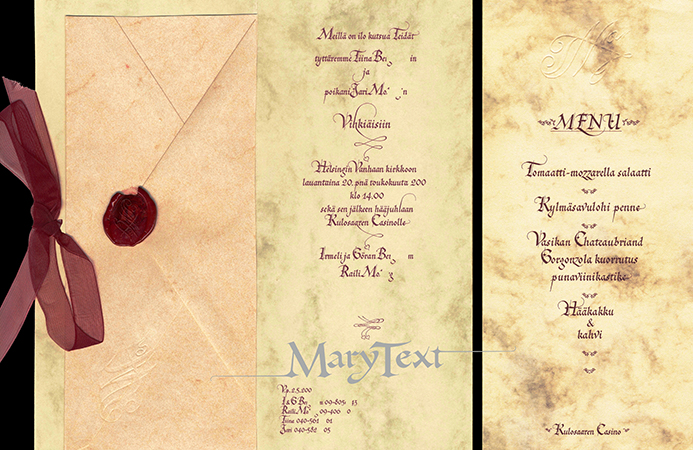 Meillä on ilo kutsua Teidät
tyttäremme Tiina
ja
poikani Jari
Vihkiäisiin
Helsingin Vanhaan kirkkoon
lauantaina 20. pnä toukokuuta 200
klo 14.00
sekä sen jälkeen hääjuhlaan
Kulosaaren Casinolle
Irmeli ja Göran
Raili
MaryText
Vp. 2.5.200
I & G
Raili 09-400
Tiina 040-561
Jari 040-582 05
MENU
Tomaatti-mozzarella salaatti
Kylmäsavulohi penne
Vasikan Chateaubriand
Gorgonzola kuorrutus
punaviinikastike
Hääkakku
&
kahvi
Kulosaaren Casino